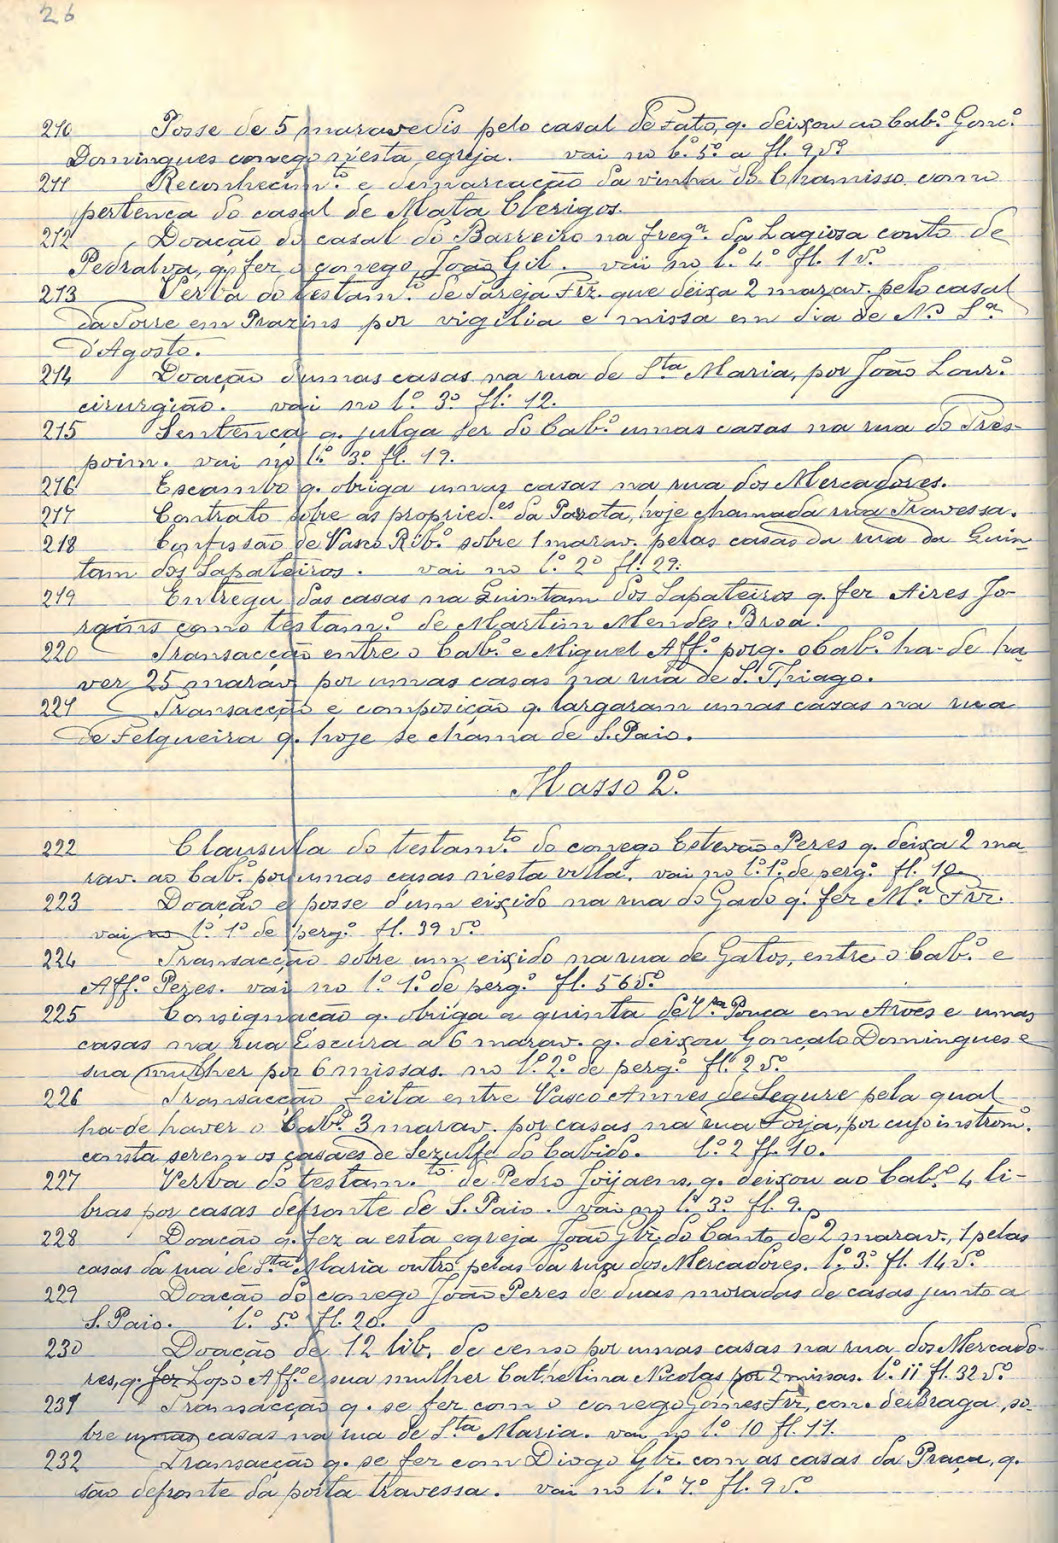 26
210 Posse de 5 maravedis pelo casal de Fato, q. deixou ao Cab.º Gonc.º
Domingues conego n'esta egreja. vai no l.º 5.º a fl. 9 v.º
211 Reconhecim.to e demarcação da vinha do Chamisso como
pertença do casal de Mata Clerigos.
212 Doação do casal do Barreiro na freg.ª da Lagiosa couto de
Pedralva, q. fez o conego João Gil. vai no l.º 4.º fl. 1 v.º
213 Verba do testam.to de Tareja Frz. que deixa 2 marav. pelo casal
da Torre em Prazins por vigilia e missa em dia de N. S.ª
d'Agosto.
214 Doação d'umas casas na rua de S.ta Maria, por João Lour.º
cirurgião. vai no l.º 3.º fl. 12.
215 Sentença q. julga ser do Cab.º umas cazas na rua do Tres-
poim. vai no l.º 3.º fl. 19.
216 Escambo q. obriga umas casas na rua dos Mercadores.
217 Contrato sobre as propried.es da Parrota, hoje chamada rua Travessa.
218 Confissão de Vasco Rib.º sobre 1 marav. pelas casas da rua da Quin-
tam dos Sapateiros. vai no l.º 2.º fl. 29.
219 Entrega das casas na Quintam dos Sapateiros q. fez Aires Jo-
rgins como testam.º de Martim Mendes Broa.
220 Transacção entre o Cab.º e Miguel Aff.º porq. o Cab.º ha-de ha-
ver 25 marav. por umas casas na rua de S. Thiago.
221 Transacção e composição q. largaram umas cazas na rua
de Felgueira q. hoje se chama de S. Paio.
Masso 2.º
222 Clausula do testam.to do conego Estevão Peres q. deixa 2 ma-
rav. ao Cab.º por umas casas n'esta villa. vai no l.º 1.º de perg.º fl. 10.
223 Doação e posse d'um eixido na rua do Gado q. fez M.ª Frz.
vai no l.º 1.º de perg.º fl. 39 v.º
224 Transacção sobre um eixido na rua de Gatos, entre o Cab.º e
Aff.º Pezes. vai no l.º 1.º de perg.º fl. 56 v.º
225 Consignação q. obriga a quinta de V.ª Pouca em Airões e umas
casas na rua Escura a 6 marav. q. deixou Gonçalo Domingues e
sua mulher por 6 missas. no l.º 2.º de perg.º fl. 2 v.º
226 Transacção feita entre Vasco Annes de Segure pela qual
ha-de haver o Cab.º 3 marav. por casas na rua Forja, por cujo instrom.º
consta serem os casaes de Sezulfe do Cabido. l.º 2 fl. 10.
227 Verba do testam.to de Pedro Joÿaens, q. deixou ao Cab.º 4 li-
bras por casas defronte de S. Paio. vai no l.º 3.º fl. 9.
228 Doação q. fez a esta egreja João Glz. do Canto de 2 marav., 1 pelas
casas da rua de S.ta Maria outro pelas da rua dos Mercadores. l.º 3.º fl. 14 v.º
229 Doação do conego João Peres de duas moradas de casas junto a
S. Paio. l.º 5.º fl. 20.
230 Doação de 12 lib. de censo por umas casas na rua dos Mercado-
res, q. fez Lopo Aff.º e sua mulher Cathelina Nicolas por 2 missas. l.º 11 fl. 32 v.º
231 Transacção q. se fez com o conego Gomes Frz, con. de Braga, so-
bre umas casas na rua de S.ta Maria. vai no l.º 10 fl. 11.
232 Transacção q. se fez com Diogo Glz. com as casas da Praça, q.
são defronte da porta travessa. vai no l.º 7.º fl. 9 v.º